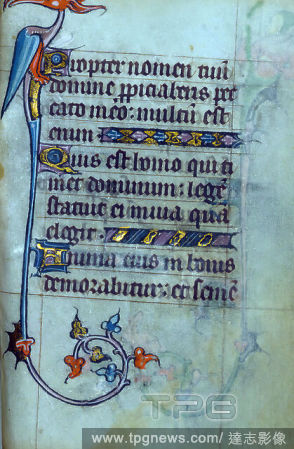 Propter nomen tuū
domine ꝓpiciaberis pec
cato meo: multū est
enim
Quis est homo qui ti
met dominum: legē
statuet ei in uia quā
elegit
Anima eius in bonis
demorabitur: et semē
TPG
www.tpgnews.com/達志影像